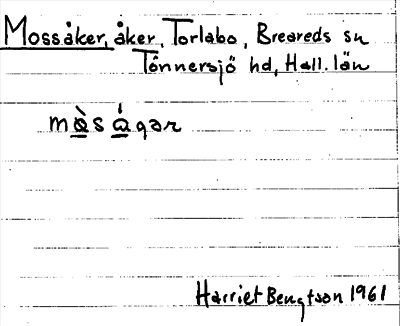 Mossåker, åker, Torlabo, Breareds sn
Tönnersjö hd, Hall. län
mò̠sá̠gər
Harriet Bengtson 1961